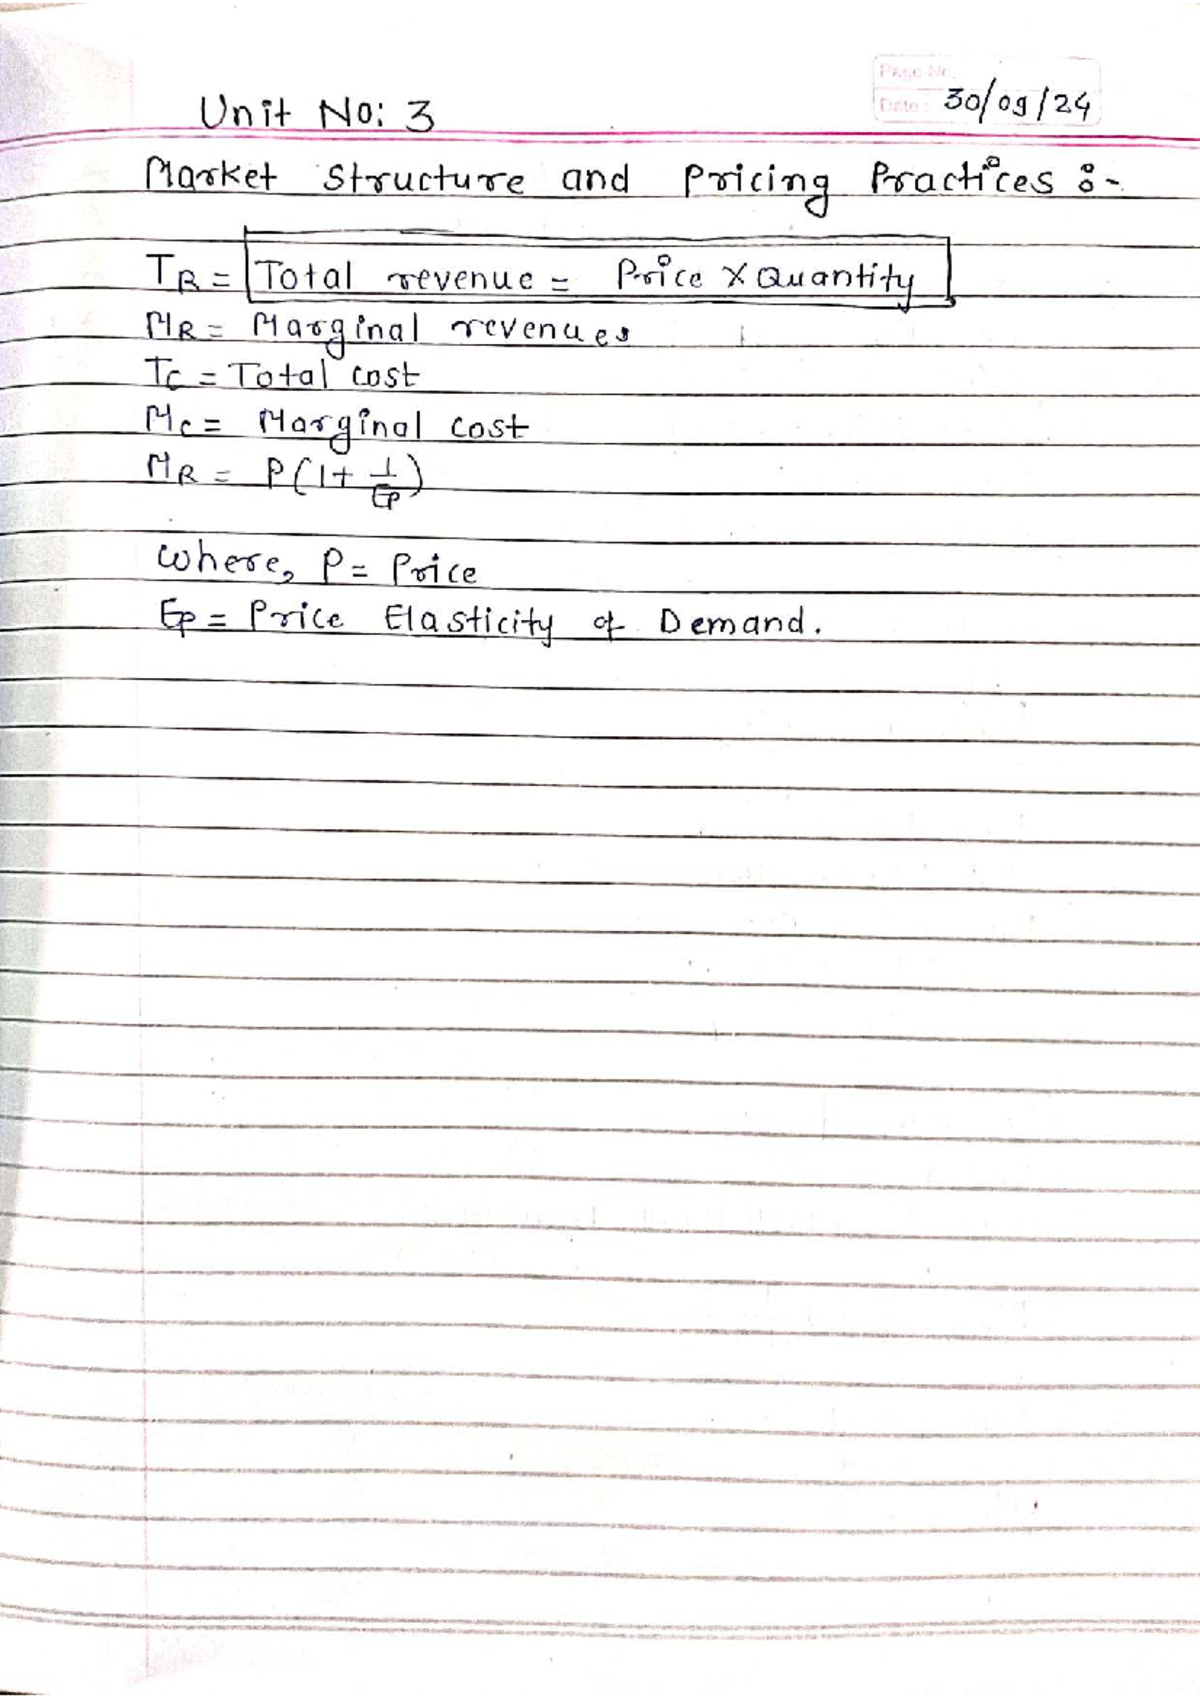 Page No.
Date: 30/09/24
Unit No: 3
Market Structure and Pricing Practices :-
TR = Total revenue = Price X Quantity
MR = Marginal revenues
TC = Total cost
MC = Marginal cost
MR = P(1+ 1/Ep)
where, P = Price
Ep = Price Elasticity of Demand.